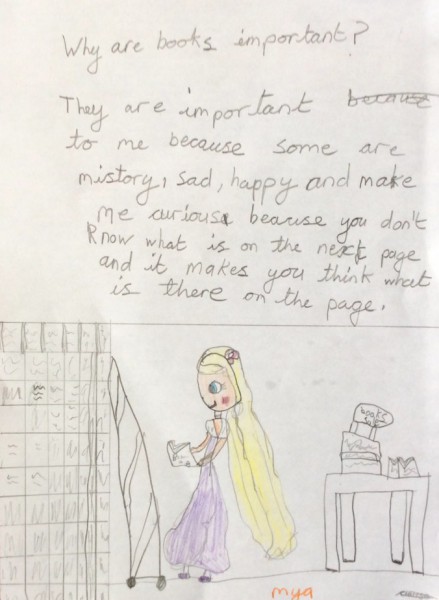 Why are books important?
They are important because
to me because some are
mistory, sad, happy and make
me curious bearuse you don't
know what is on the next page
and it makes you think what
is there on the page.
books
mya